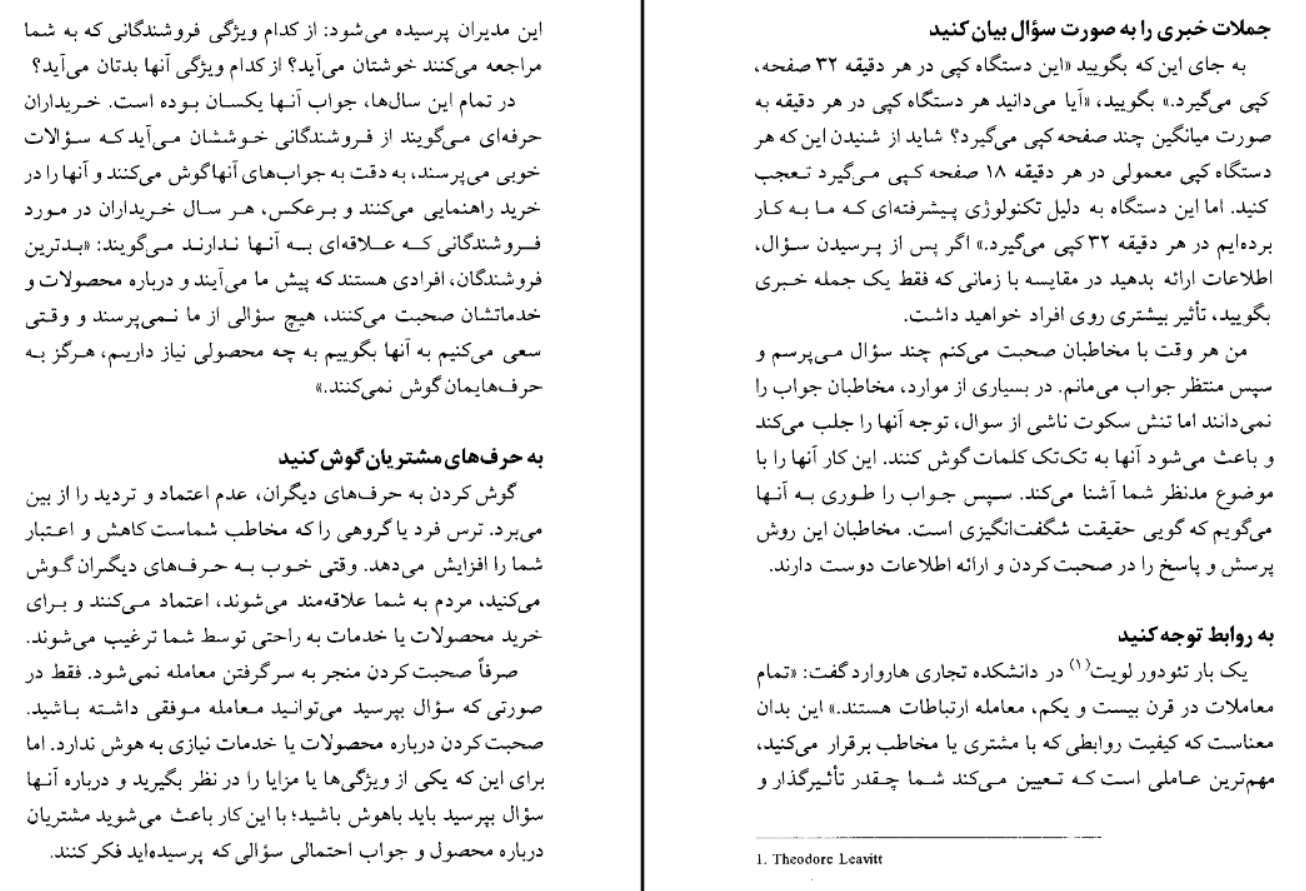 جملات خبری را به صورت سؤال بیان کنید
به جای این که بگویید «این دستگاه کپی در هر دقیقه ۳۲ صفحه،
کپی می‌گیرد.» بگویید، «آیا می‌دانید هر دستگاه کپی در هر دقیقه به
صورت میانگین چند صفحه کپی می‌گیرد؟ شاید از شنیدن این که هر
دستگاه کپی معمولی در هر دقیقه ۱۸ صفحه کپی می‌گیرد تعجب
کنید. اما این دستگاه به دلیل تکنولوژی پیشرفته‌ای که ما به کار
برده‌ایم در هر دقیقه ۳۲ کپی می‌گیرد.» اگر پس از پرسیدن سؤال،
اطلاعات ارائه بدهید در مقایسه با زمانی که فقط یک جمله خبری
بگویید، تأثیر بیشتری روی افراد خواهید داشت.
من هر وقت با مخاطبان صحبت می‌کنم چند سؤال می‌پرسم و
سپس منتظر جواب می‌مانم. در بسیاری از موارد، مخاطبان جواب را
نمی‌دانند اما تنش سکوت ناشی از سوال، توجه آنها را جلب می‌کند
و باعث می‌شود آنها به تک‌تک کلمات گوش کنند. این کار آنها را با
موضوع مدنظر شما آشنا می‌کند. سپس جواب را طوری به آنها
می‌گویم که گویی حقیقت شگفت‌انگیزی است. مخاطبان این روش
پرسش و پاسخ را در صحبت کردن و ارائه اطلاعات دوست دارند.
به روابط توجه کنید
یک بار تئودور لویت(۱) در دانشکده تجاری هاروارد گفت: «تمام
معاملات در قرن بیست و یکم، معامله ارتباطات هستند.» این بدان
معناست که کیفیت روابطی که با مشتری یا مخاطب برقرار می‌کنید،
مهم‌ترین عاملی است که تعیین می‌کند شما چقدر تأثیرگذار و
1. Theodore Leavitt
این مدیران پرسیده می‌شود: از کدام ویژگی فروشندگانی که به شما
مراجعه می‌کنند خوشتان می‌آید؟ از کدام ویژگی آنها بدتان می‌آید؟
در تمام این سال‌ها، جواب آنها یکسان بوده است. خریداران
حرفه‌ای می‌گویند از فروشندگانی خوششان می‌آید که سؤالات
خوبی می‌پرسند، به دقت به جواب‌های آنها گوش می‌کنند و آنها را در
خرید راهنمایی می‌کنند و برعکس، هر سال خریداران در مورد
فروشندگانی که علاقه‌ای به آنها ندارند می‌گویند: «بدترین
فروشندگان، افرادی هستند که پیش ما می‌آیند و درباره محصولات و
خدماتشان صحبت می‌کنند، هیچ سؤالی از ما نمی‌پرسند و وقتی
سعی می‌کنیم به آنها بگوییم به چه محصولی نیاز داریم، هرگز به
حرف‌هایمان گوش نمی‌کنند.»
به حرف‌های مشتریان گوش کنید
گوش کردن به حرف‌های دیگران، عدم اعتماد و تردید را از بین
می‌برد. ترس فرد یا گروهی را که مخاطب شماست کاهش و اعتبار
شما را افزایش می‌دهد. وقتی خوب به حرف‌های دیگران گوش
می‌کنید، مردم به شما علاقه‌مند می‌شوند، اعتماد می‌کنند و برای
خرید محصولات یا خدمات به راحتی توسط شما ترغیب می‌شوند.
صرفاً صحبت کردن منجر به سر گرفتن معامله نمی‌شود. فقط در
صورتی که سؤال بپرسید می‌توانید معامله موفقی داشته باشید.
صحبت کردن درباره محصولات یا خدمات نیازی به هوش ندارد. اما
برای این که یکی از ویژگی‌ها یا مزایا را در نظر بگیرید و درباره آنها
سؤال بپرسید باید باهوش باشید؛ با این کار باعث می‌شوید مشتریان
درباره محصول و جواب احتمالی سؤالی که پرسیده‌اید فکر کنند.